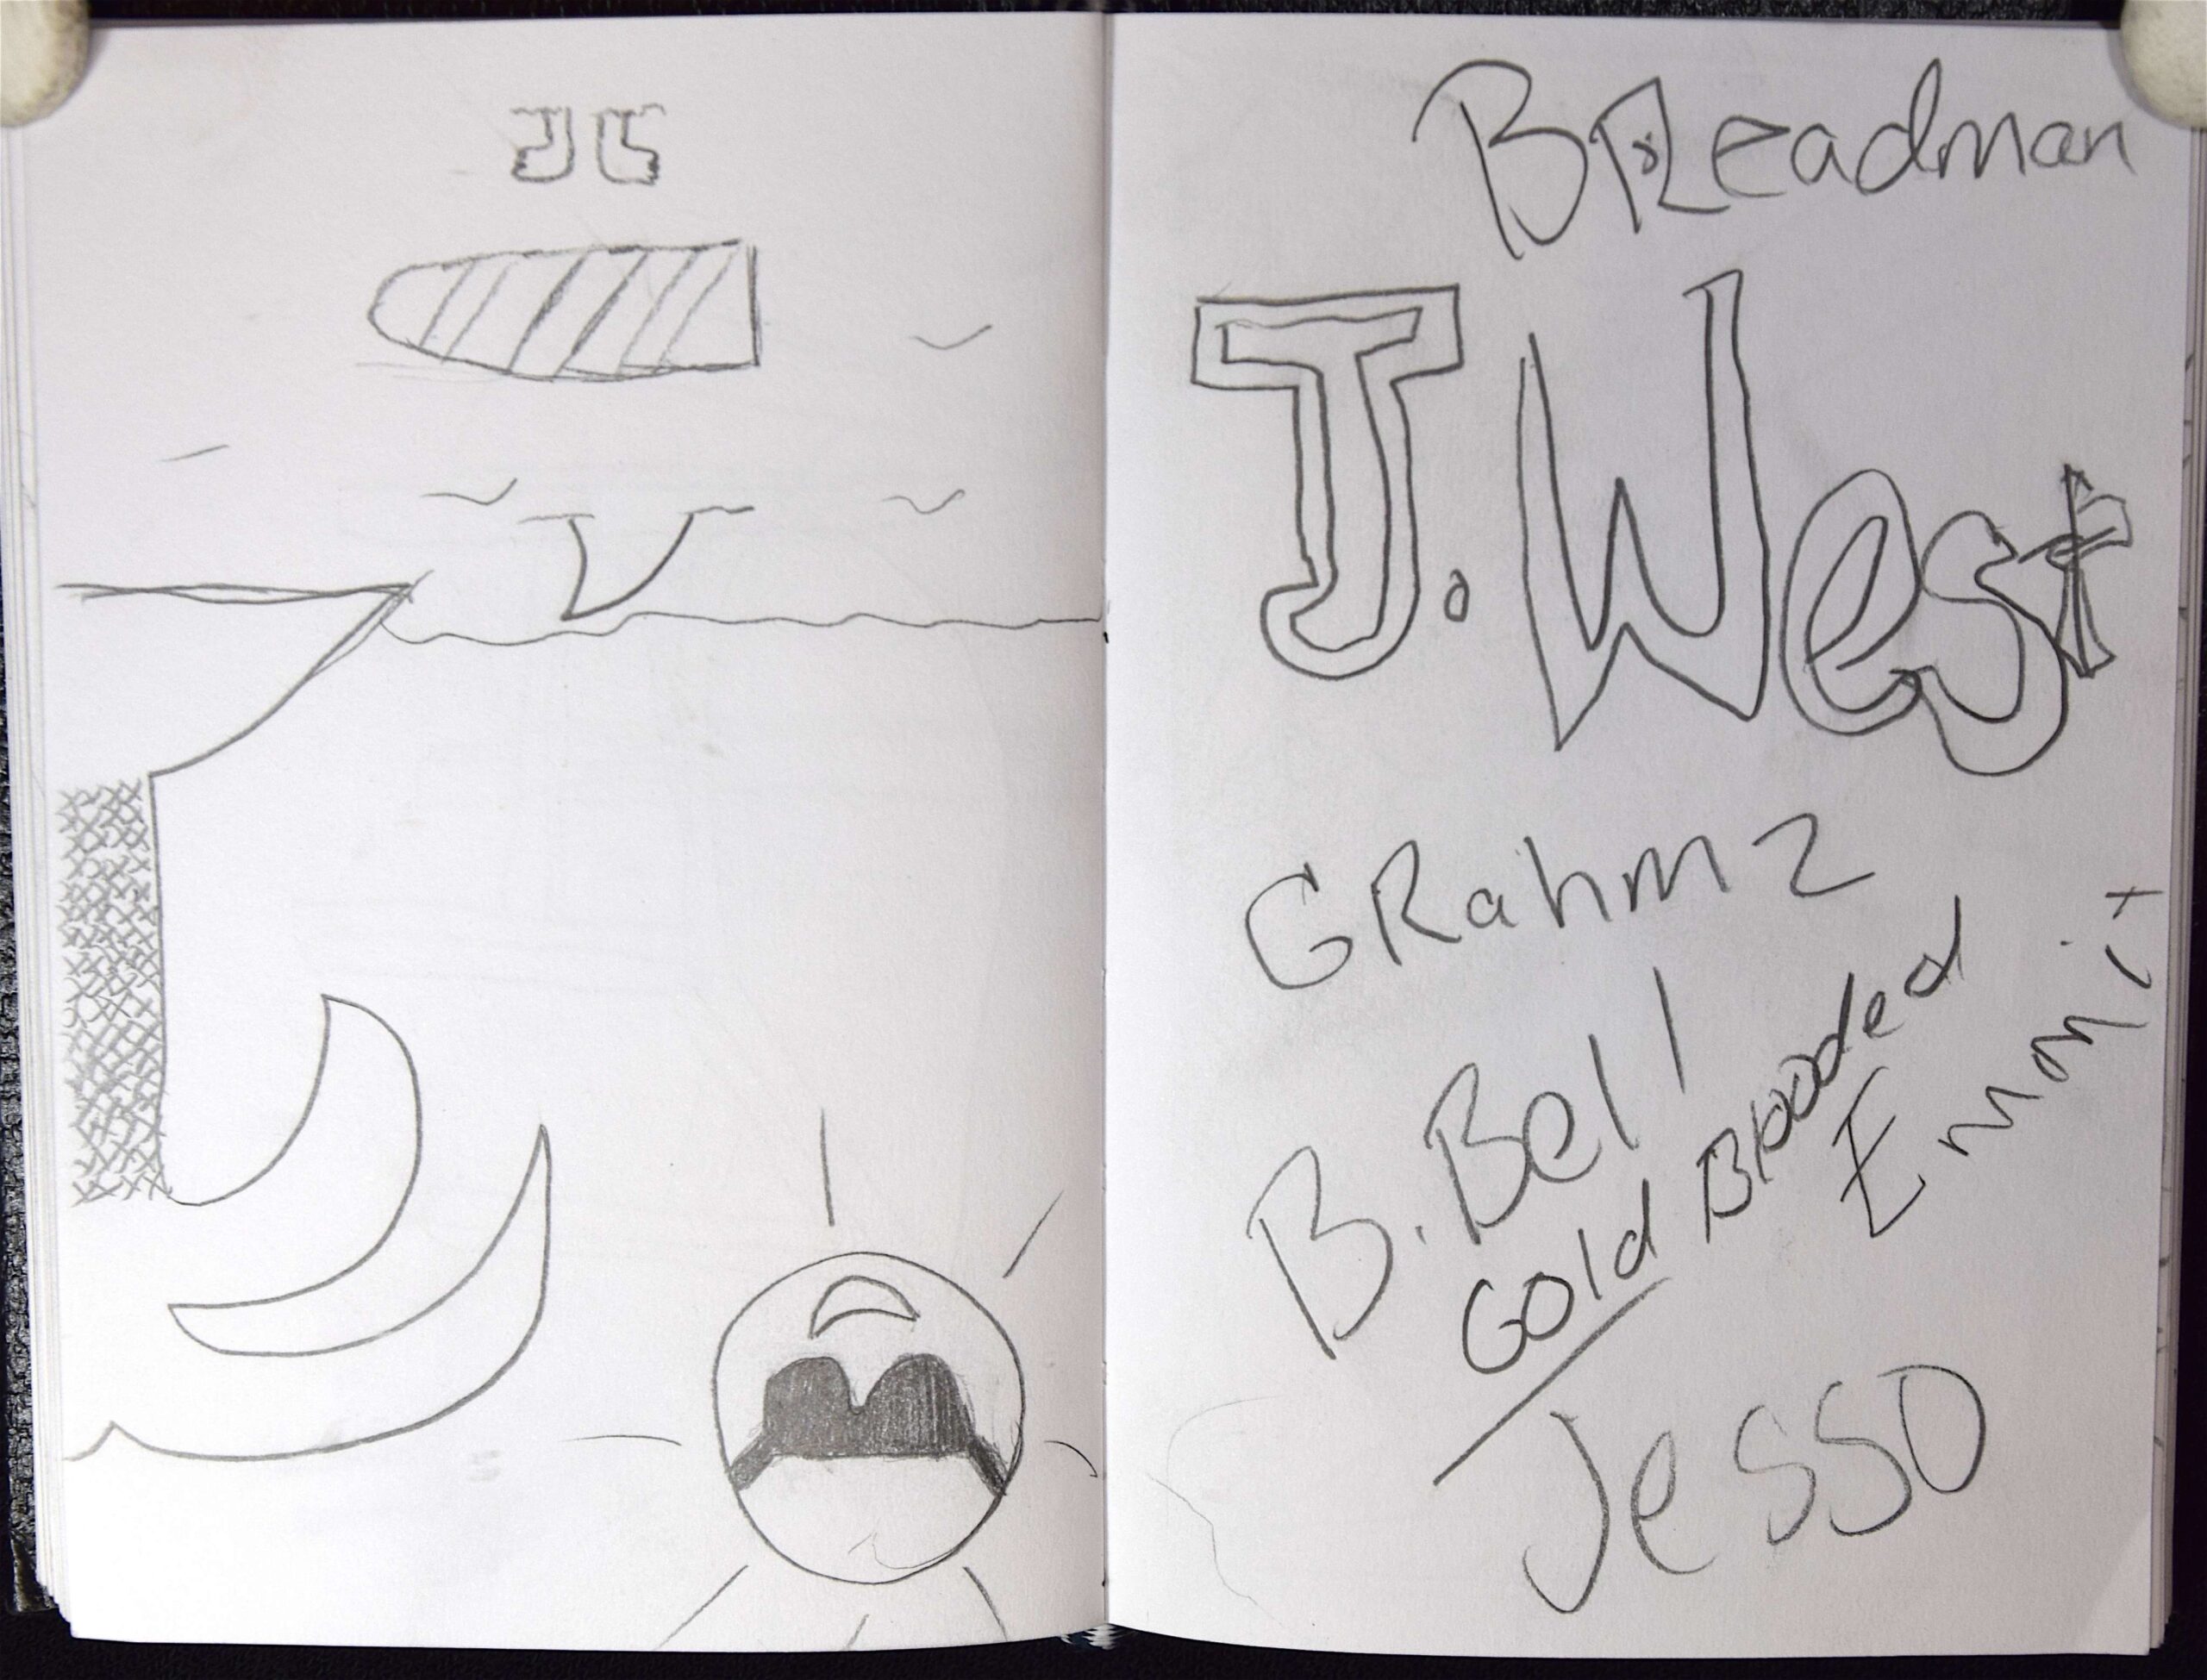 BReadman
J. West
GRahmz
B. Bell
Gold Blooded
Emmit
Jesso